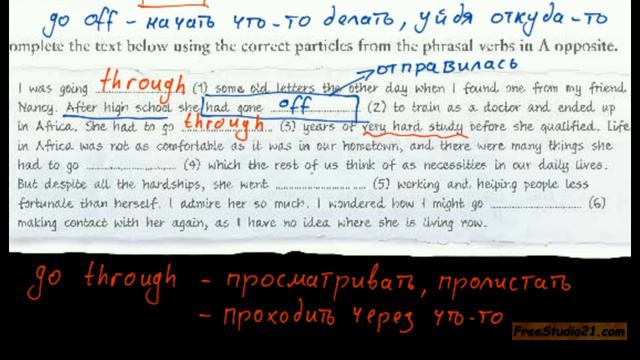 go off - начать что-то делать, уйдя откуда-то
omplete the text below using the correct particles from the phrasal verbs in A opposite.
отправилась
I was going through (1) some old letters the other day when I found one from my friend
Nancy. After high school she had gone off (2) to train as a doctor and ended up
in Africa. She had to go through (3) years of very hard study before she qualified. Life
in Africa was not as comfortable as it was in our hometown, and there were many things she
had to go .......................... (4) which the rest of us think of as necessities in our daily lives.
But despite all the hardships, she went .......................... (5) working and helping people less
fortunate than herself. I admire her so much. I wondered how I might go .......................... (6)
making contact with her again, as I have no idea where she is living now.
go through - просматривать, пролистать
- проходить через что-то
FreeStudio21.com